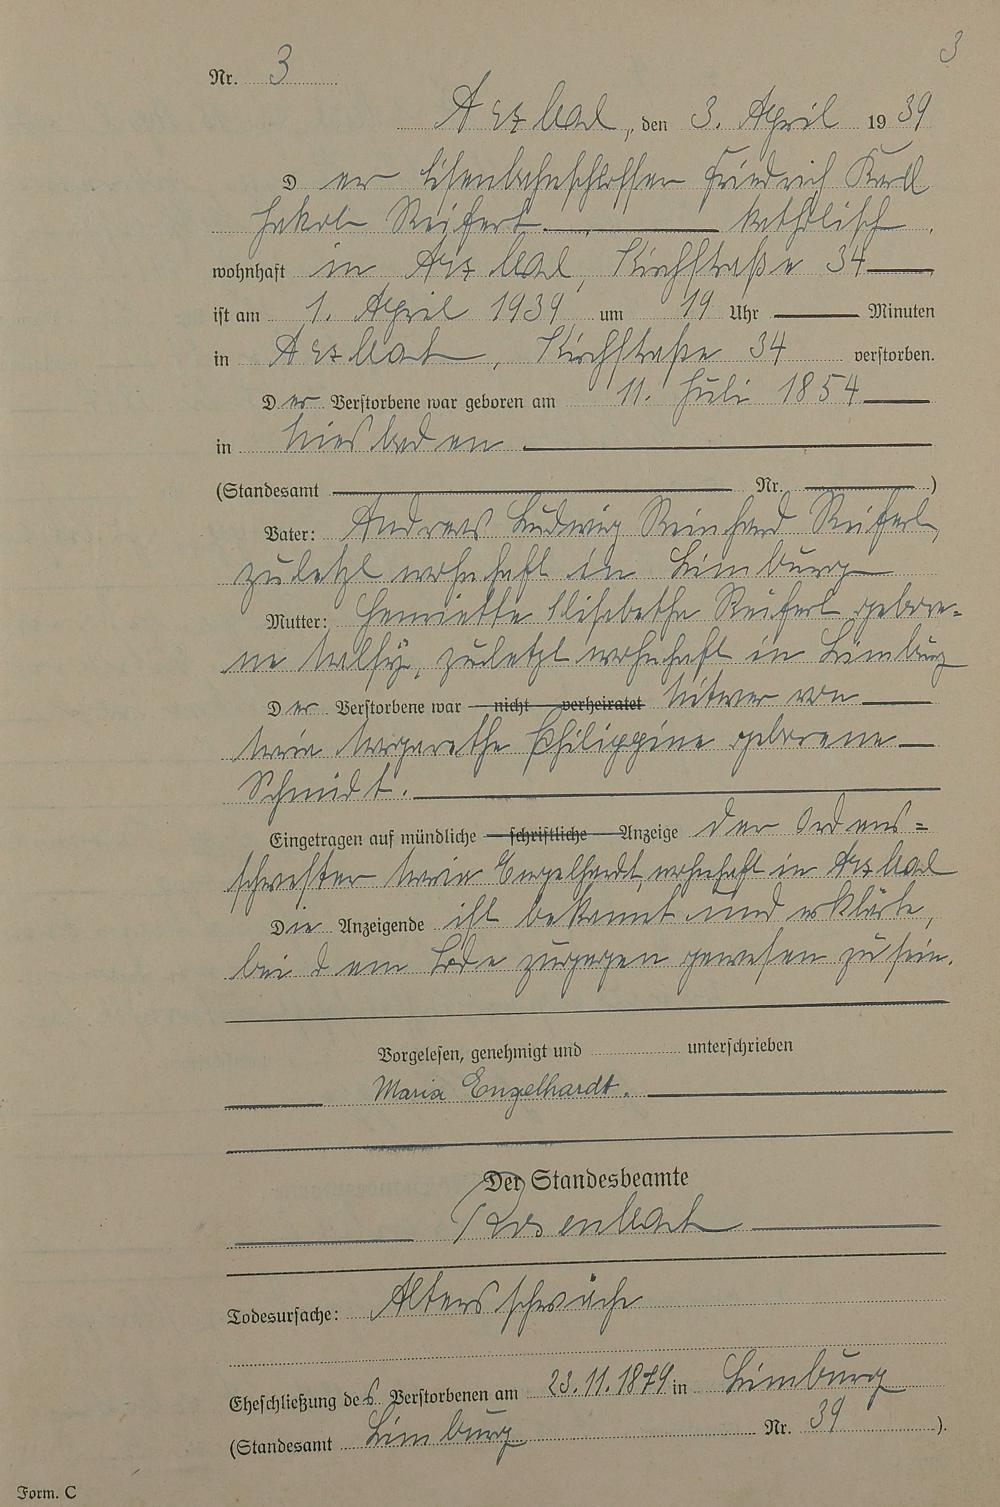 3
Nr. 3
Arzbach, den 3. April 1939
Der Eisenbahnschlosser Friedrich Karl
Jakob Reifert katholisch
wohnhaft in Arzbach, Kirchstraße 34
ist am 1. April 1939 um 19 Uhr Minuten
in Arzbach, Kirchstraße 34 verstorben.
Der Verstorbene war geboren am 11. Juli 1854
in Wiesbaden
(Standesamt Nr. )
Vater: Andreas Ludwig Reinhard Reifert,
zuletzt wohnhaft in Limburg
Mutter: Henriette Elisabetha Reifert gebore-
ne, zuletzt wohnhaft in Limburg
Der Verstorbene war nicht verheiratet Witwer von
Maria Margarethe Philippine geborene
Schmidt.
Eingetragen auf mündliche schriftliche Anzeige der Ordens=
schwester Maria Engelhardt, wohnhaft in Arzbach
Die Anzeigende ist bekannt und erklärte,
bei dem Tode zugegen gewesen zu sein.
Vorgelesen, genehmigt und unterschrieben
Maria Engelhardt.
Der Standesbeamte
Rosenbach
Todesursache: Altersschwäche
Eheschließung des Verstorbenen am 23.11.1879 in Limburg
(Standesamt Limburg Nr. 39 ).
Form. C